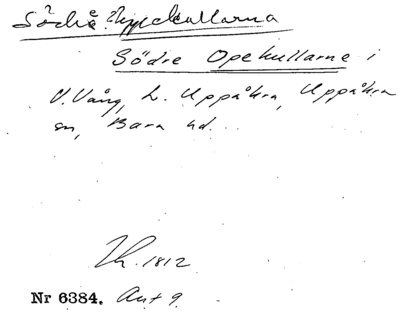 Södra Uppekullarna
Södre Opekullarne i
V. Vång, L. Uppåkra, Uppåkra
sn, Bara hd.
1812
Nr 6384. Avt 9